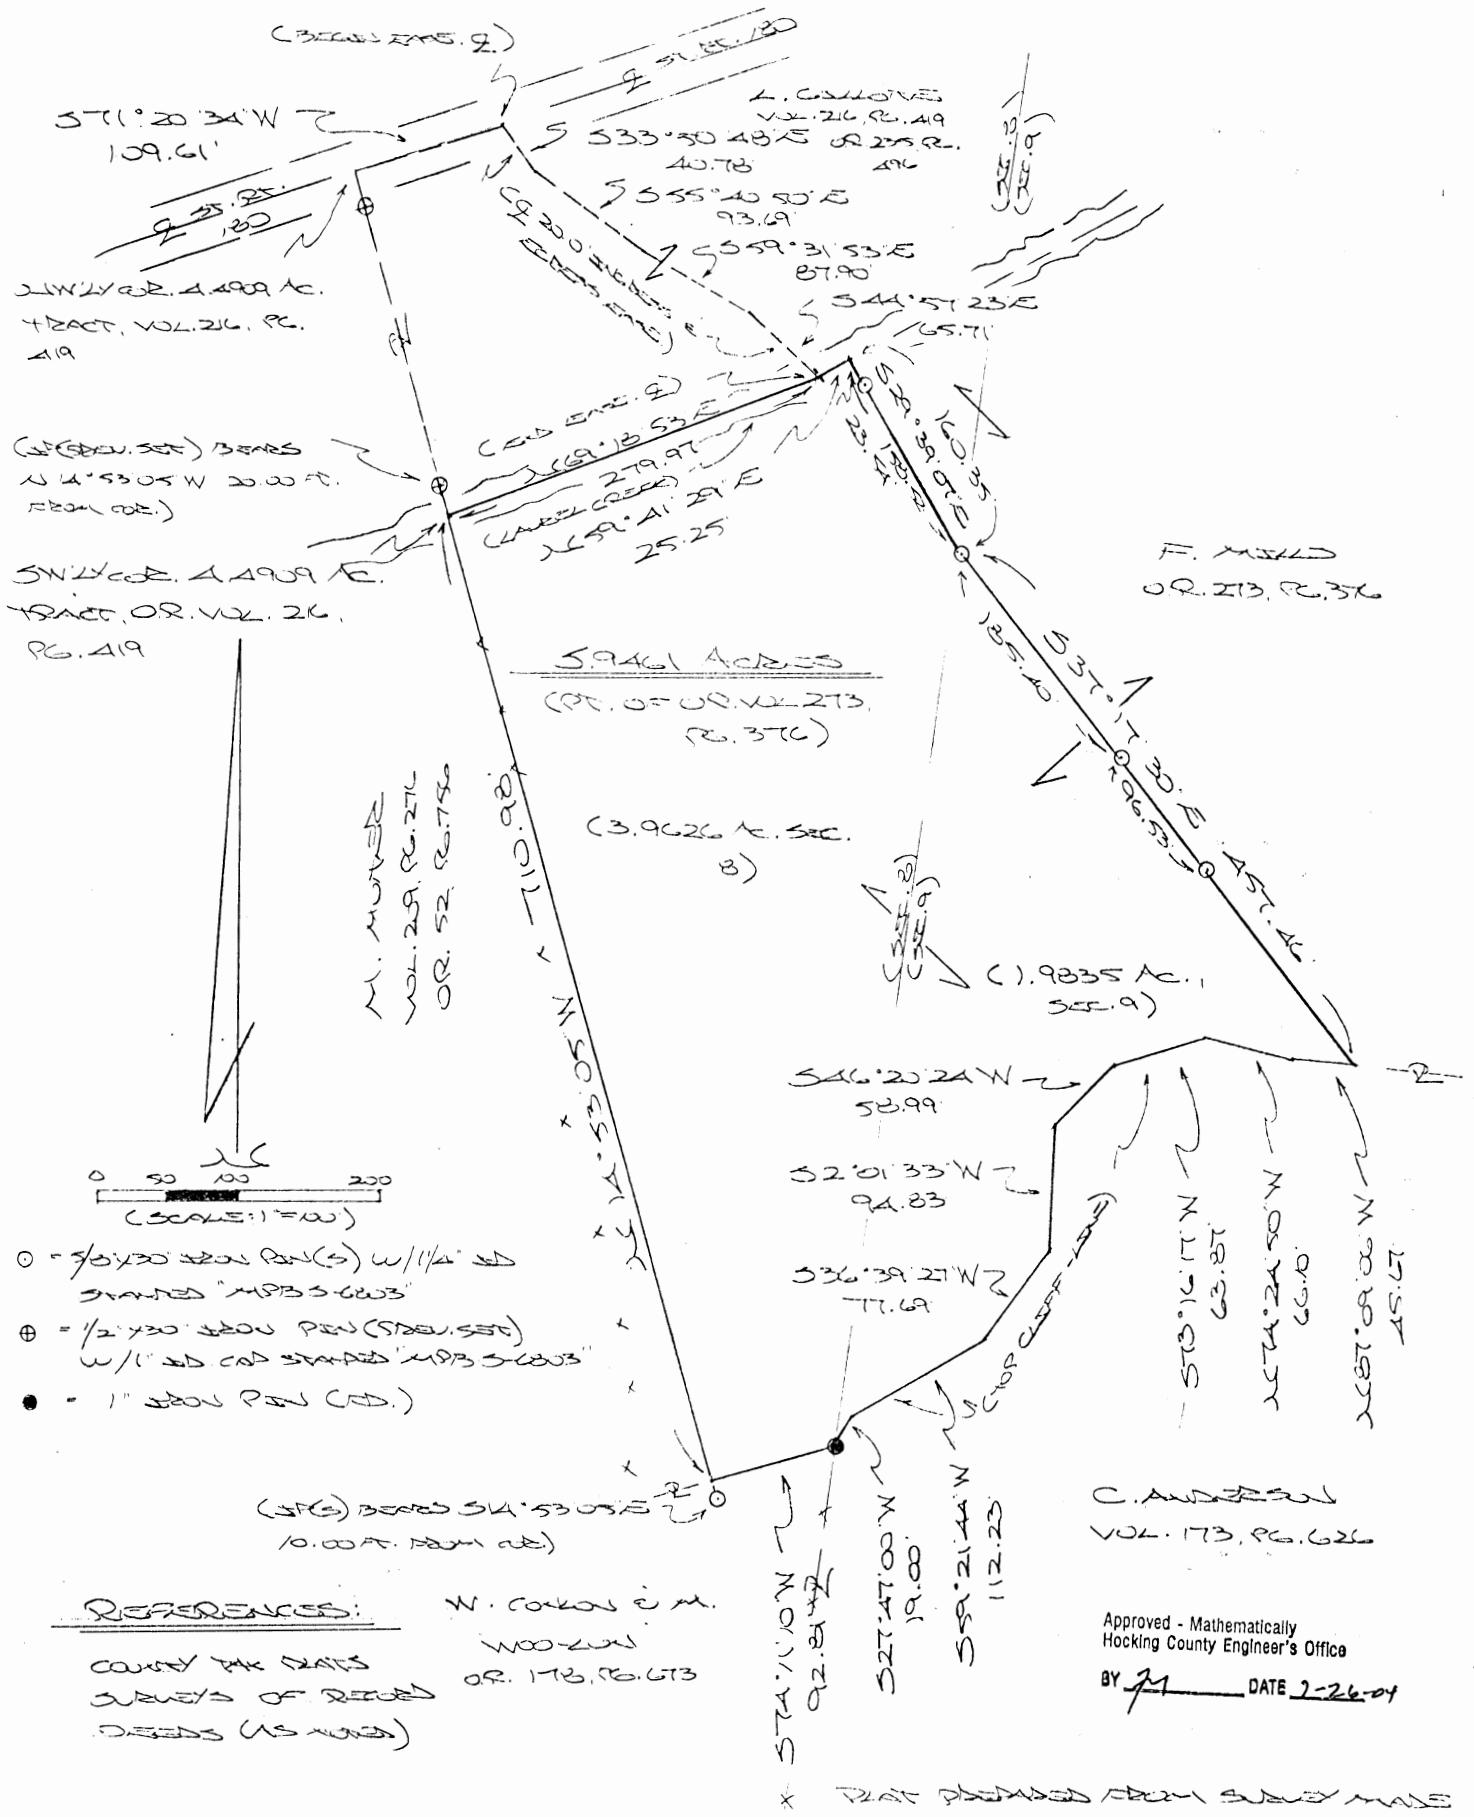 (BEGIN EASE. ℄)
℄ ST. RT. 180
S71°20'34"W
109.61'
L.
VOL. 216, PG. 419
O.R. 235, PG.
496
S33°50'48"E
40.78'
S55°40'50"E
93.69'
S59°31'53"E
87.90'
S44°57'23"E
165.71'
(SEC. 8)
(SEC. 9)
℄ ST. RT.
180
(℄ 20.0' INGRESS &
EGRESS EASE.)
NW'LY COR. 4.4909 AC.
TRACT, VOL. 216, PG.
419
(IP(PREV. SET) BEARS
N 14°53'05"W 20.00 FT.
FROM COR.)
(END EASE. ℄)
N69°18'53"E
279.97'
(LAUREL CREEK)
N59°41'29"E
25.25'
23.44'
S29°39'07"E
160.35'
SW'LY COR. 4.4909 AC.
TRACT, O.R. VOL. 216,
PG. 419
F. MILLS
O.R. 273, PG. 376
5.9461 ACRES
(PT. OF O.R. VOL. 273,
PG. 376)
185.40'
S37°17'30"E 457.46'
96.53'
M.
VOL. 209, PG. 276
O.R. 52, PG. 756
N14°53'05"W 710.98'
(3.9626 AC. SEC.
8)
(SEC. 8)
(SEC. 9)
(1.9835 AC.,
SEC. 9)
S46°20'24"W
58.99'
S2°01'33"W
94.83'
S36°39'27"W
77.69'
(TOP CLIFF-LINE)
S73°16'17"W
63.87'
N74°24'50"W
66.10'
N87°09'06"W
45.67'
0 50 100 200
(SCALE: 1"=100')
⊙ = 5/8"X30" IRON PIN(S) W/1 1/4" ID
STAMPED "MPB S-6803"
⊕ = 1/2"X30" IRON PIN (PREV. SET)
W/1" ID CAP STAMPED "MPB S-6803"
● = 1" IRON PIN (FD.)
(IP(S) BEARS S14°53'05"E
10.00 FT. FROM COR.)
S74°11'10"W
92.81'
S27°47'00"W
19.00'
S59°21'44"W
112.23'
C. ANDERSON
VOL. 173, PG. 626
REFERENCES:
COUNTY TAX PLATS
SURVEYS OF RECORD
DEEDS (AS NOTED)
W. & M.
O.R. 178, PG. 673
Approved - Mathematically
Hocking County Engineer's Office
BY DATE 2-26-04
* PLAT PREPARED FROM SURVEY MADE